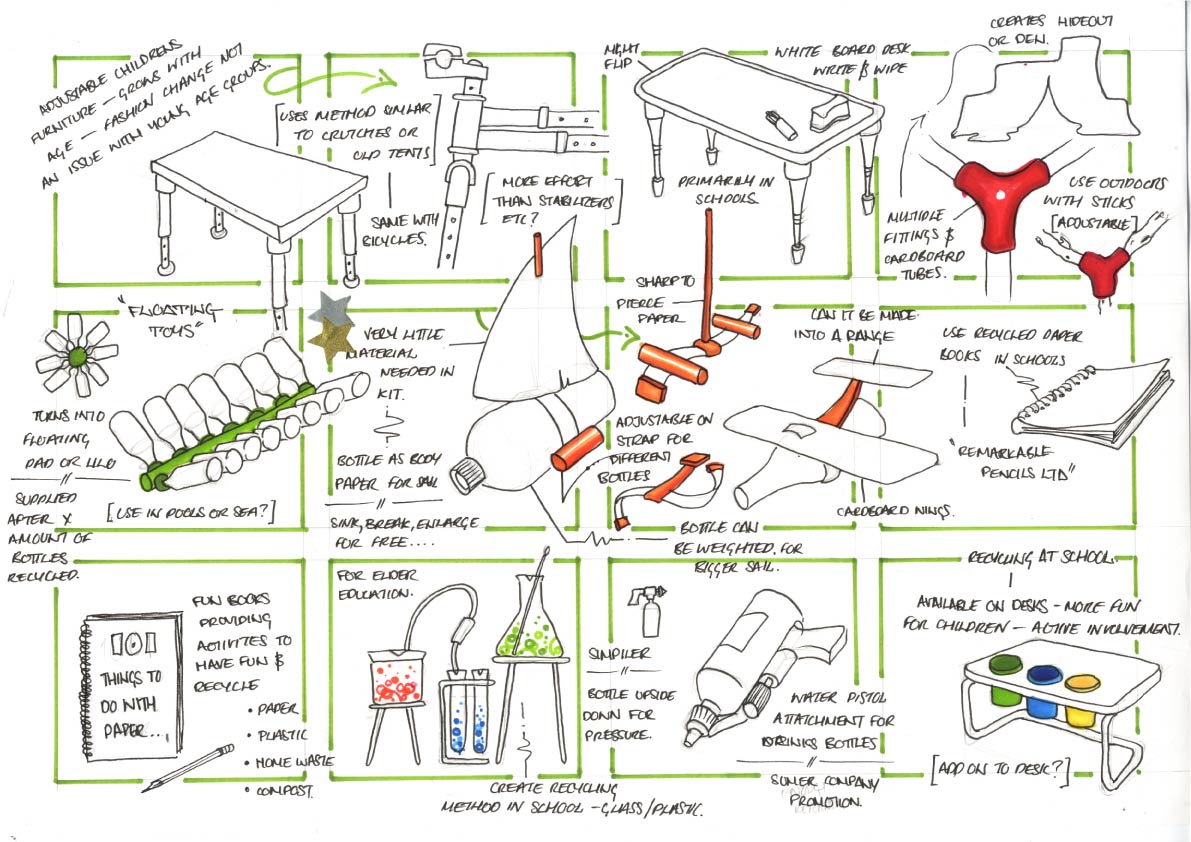 ADJUSTABLE CHILDRENS
FURNITURE – GROWS WITH
AGE – FASHION CHANGE NOT
AN ISSUE WITH YOUNG AGE GROUPS.
[USES METHOD SIMILAR
TO CRUTCHES OR
OLD TENTS]
SAME WITH
BICYCLES.
[MORE EFFORT
THAN STABILIZERS
ETC?]
MIGHT
FLIP
WHITE BOARD DESK
WRITE & WIPE
PRIMARILY IN
SCHOOLS.
CREATES HIDEOUT
OR DEN.
MULTIPLE
FITTINGS &
CARDBOARD
TUBES.
USE OUTDOORS
WITH STICKS
[ADJUSTABLE]
"FLOATING
TOYS"
TURNS INTO
FLOATING
PAD OR LILO
SUPPLIED
AFTER X
AMOUNT OF
BOTTLES
RECYCLED.
[USE IN POOLS OR SEA?]
VERY LITTLE
MATERIAL
NEEDED IN
KIT.
BOTTLE AS BODY
PAPER FOR SAIL
SINK, BREAK, ENLARGE
FOR FREE....
SHARP TO
PIERCE
PAPER
ADJUSTABLE ON
STRAP FOR
DIFFERENT
BOTTLES
BOTTLE CAN
BE WEIGHTED, FOR
BIGGER SAIL.
CAN IT BE MADE
INTO A RANGE
CARDBOARD WINGS.
USE RECYCLED PAPER
BOOKS IN SCHOOLS
"REMARKABLE
PENCILS LTD"
101
THINGS TO
DO WITH
PAPER...
FUN BOOKS
PROVIDING
ACTIVITES TO
HAVE FUN &
RECYCLE
• PAPER
• PLASTIC
• HOME WASTE
• COMPOST.
FOR ELDER
EDUCATION.
CREATE RECYCLING
METHOD IN SCHOOL – GLASS/PLASTIC.
SIMPILER
BOTTLE UPSIDE
DOWN FOR
PRESSURE.
WATER PISTOL
ATTACHMENT FOR
DRINKS BOTTLES
SUMER COMPANY
PROMOTION.
RECYCLING AT SCHOOL.
AVAILABLE ON DESKS – MORE FUN
FOR CHILDREN – ACTIVE INVOLVEMENT.
[ADD ON TO DESK?]